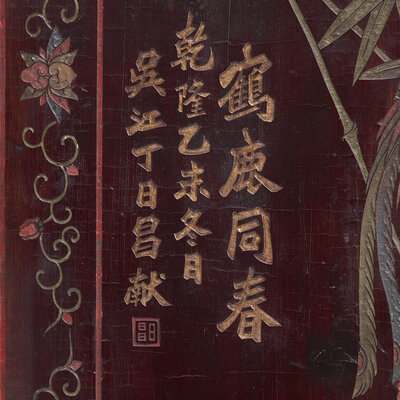 鶴鹿同春
乾隆乙未冬日
吳江丁日昌献